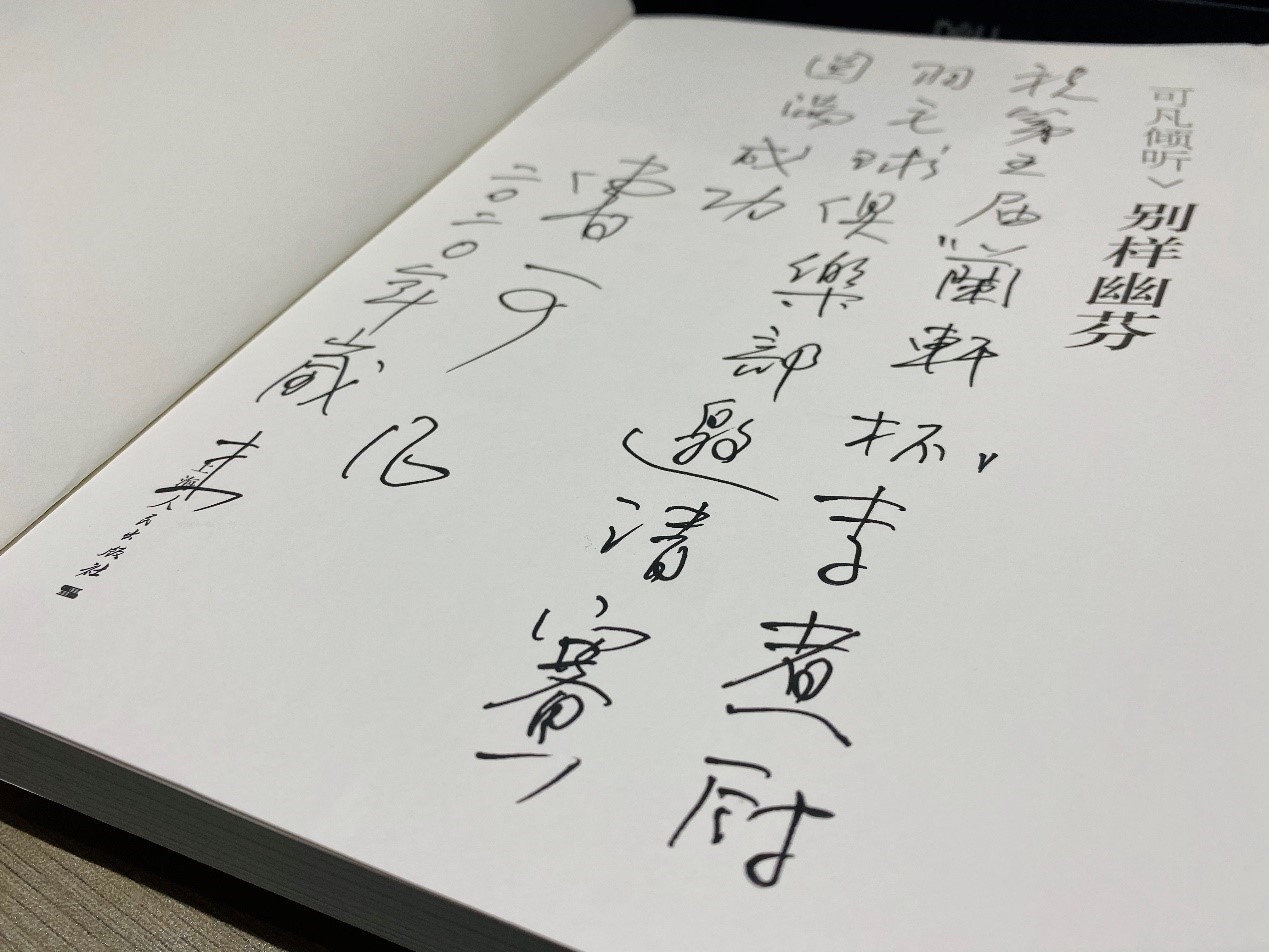 DELL
可凡倾听〉别样幽芬
祝第五届“蘭軒杯”李煮厨
羽毛球俱樂部邀请賽
圆满成功
曹可凡
二〇二〇年歲末
上海人民出版社